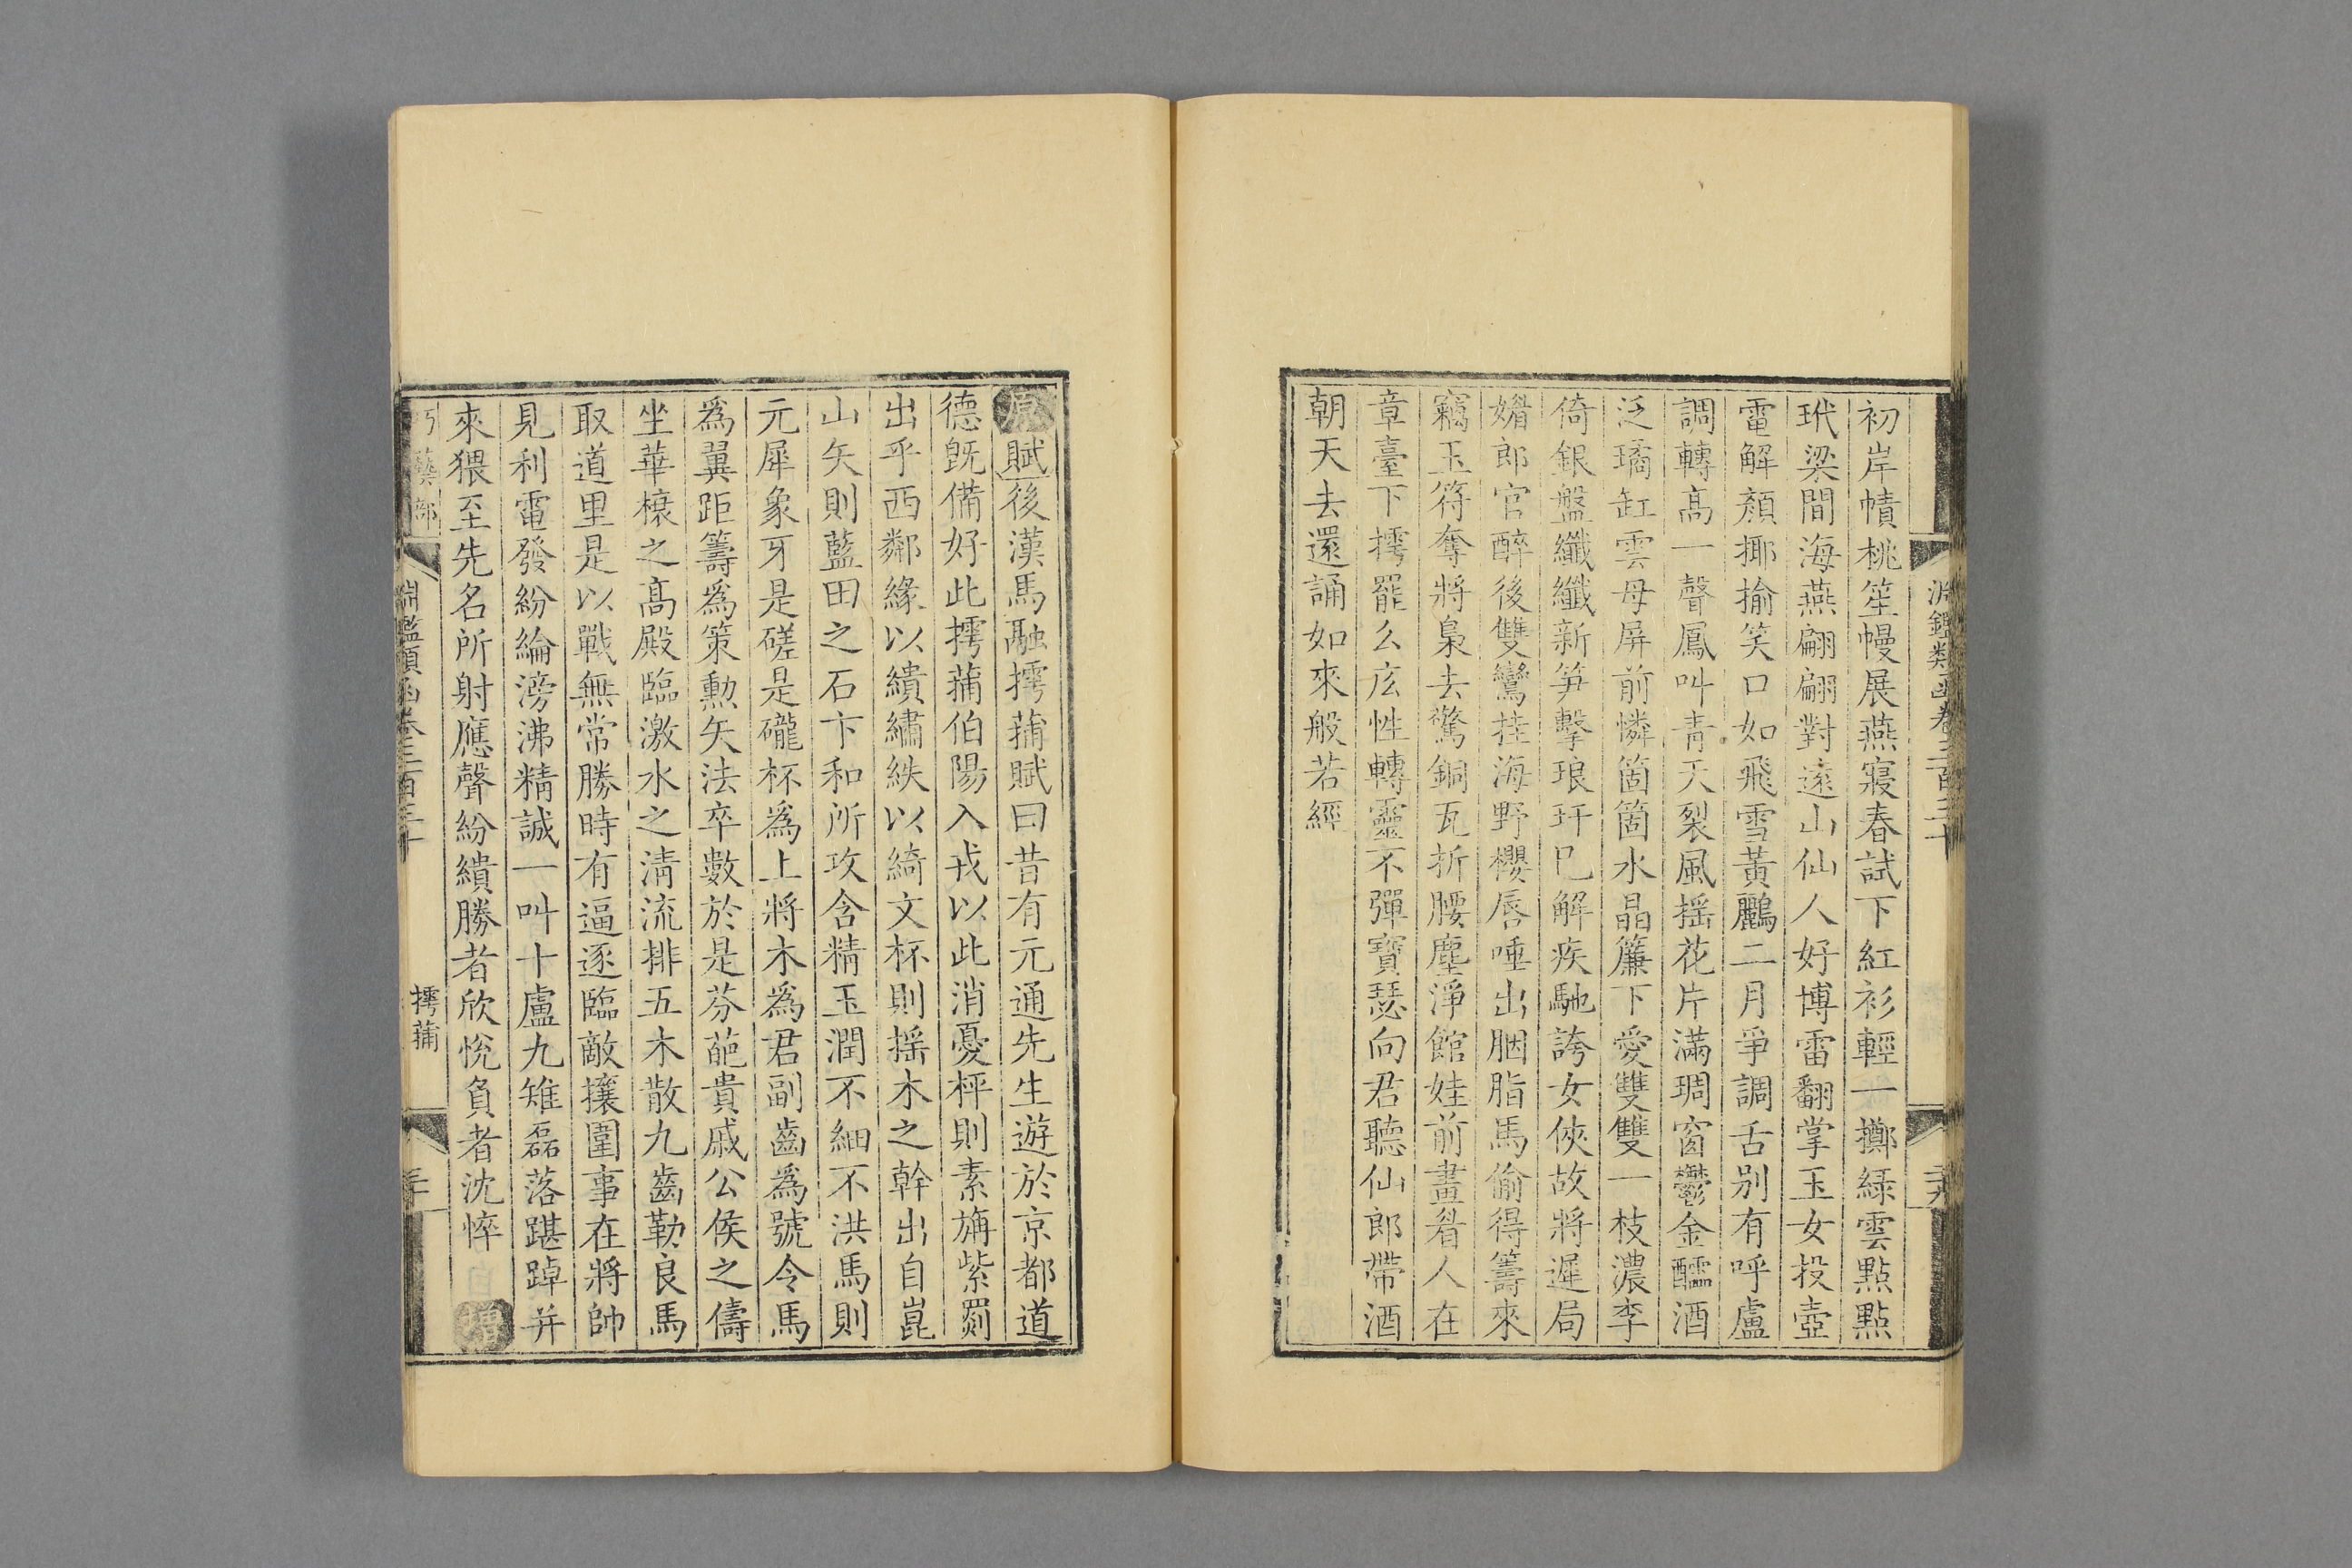 淵鑑類函卷三百三十
初岸幘桃笙幔展燕寢春試下紅衫輕一擲緑雲點點
玳梁間海燕翩翩對遠山仙人好博雷翻掌玉女投壺
電解顏揶揄笑口如飛雪黃鸝二月爭調舌别有呼盧
調轉高一聲鳳叫青天裂風摇花片滿琱窗鬱金醽酒
泛璚缸雲母屏前憐箇箇水晶簾下愛雙雙一枝濃李
倚銀盤纖纖新笋擊琅玕巳解疾馳誇女俠故將遲局
媚郎官醉後雙鸞挂海野櫻唇唾出胭脂馬偷得籌來
竊玉符奪將梟去驚銅瓦折腰塵淨館娃前畫眉人在
章臺下摴罷么庅性轉靈不彈寶瑟向君聽仙郎帶酒
朝天去還誦如來般若經
原賦後漢馬融摴蒱賦曰昔有元通先生遊於京都道
德旣備好此摴蒱伯陽入戎以此消憂枰則素旃紫罽
出乎西鄰緣以繢繡紩以綺文杯則摇木之幹出自崑
山矢則藍田之石卞和所攻含精玉潤不細不洪馬則
元犀象牙是磋是礲杯爲上將木爲君副齒爲號令馬
爲翼距籌爲策動矢法卒數於是芬葩貴戚公侯之儔
坐華榱之高殿臨激水之清流排五木散九齒勒良馬
取道里是以戰無常勝時有逼逐臨敵攘圍事在將帥
見利電發紛綸滂沸精誠一叫十盧九雉磊落踸踔并
來猥至先名所射應聲紛繢勝者欣悅負者沈悴 增
巧藝部 淵鑑類函卷三百三十 摴蒱